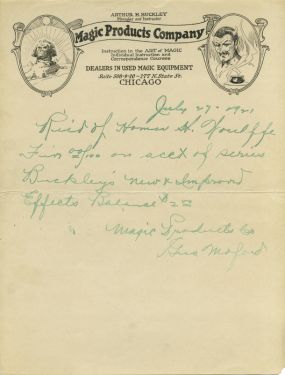 ARTHUR P. BUCKLEY
Manager and Instructor
Magic Products Company
Instruction in the ART of MAGIC
Individual Instruction and
Correspondence Courses
DEALERS IN USED MAGIC EQUIPMENT
Suite 508-9-10 — 177 N. State St.
CHICAGO
July 27 - 1921
Rec'd of Homer H.
Five 00/100 on acct of series
Buckley's New & Improved
Effects Balance $2 00
Magic Products Co